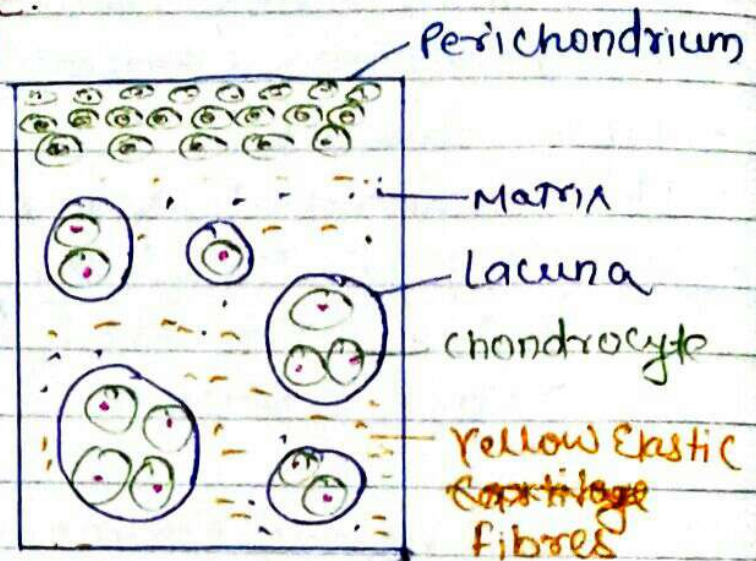 Perichondrium
Matrix
Lacuna
Chondrocyte
Yellow Elastic
fibres